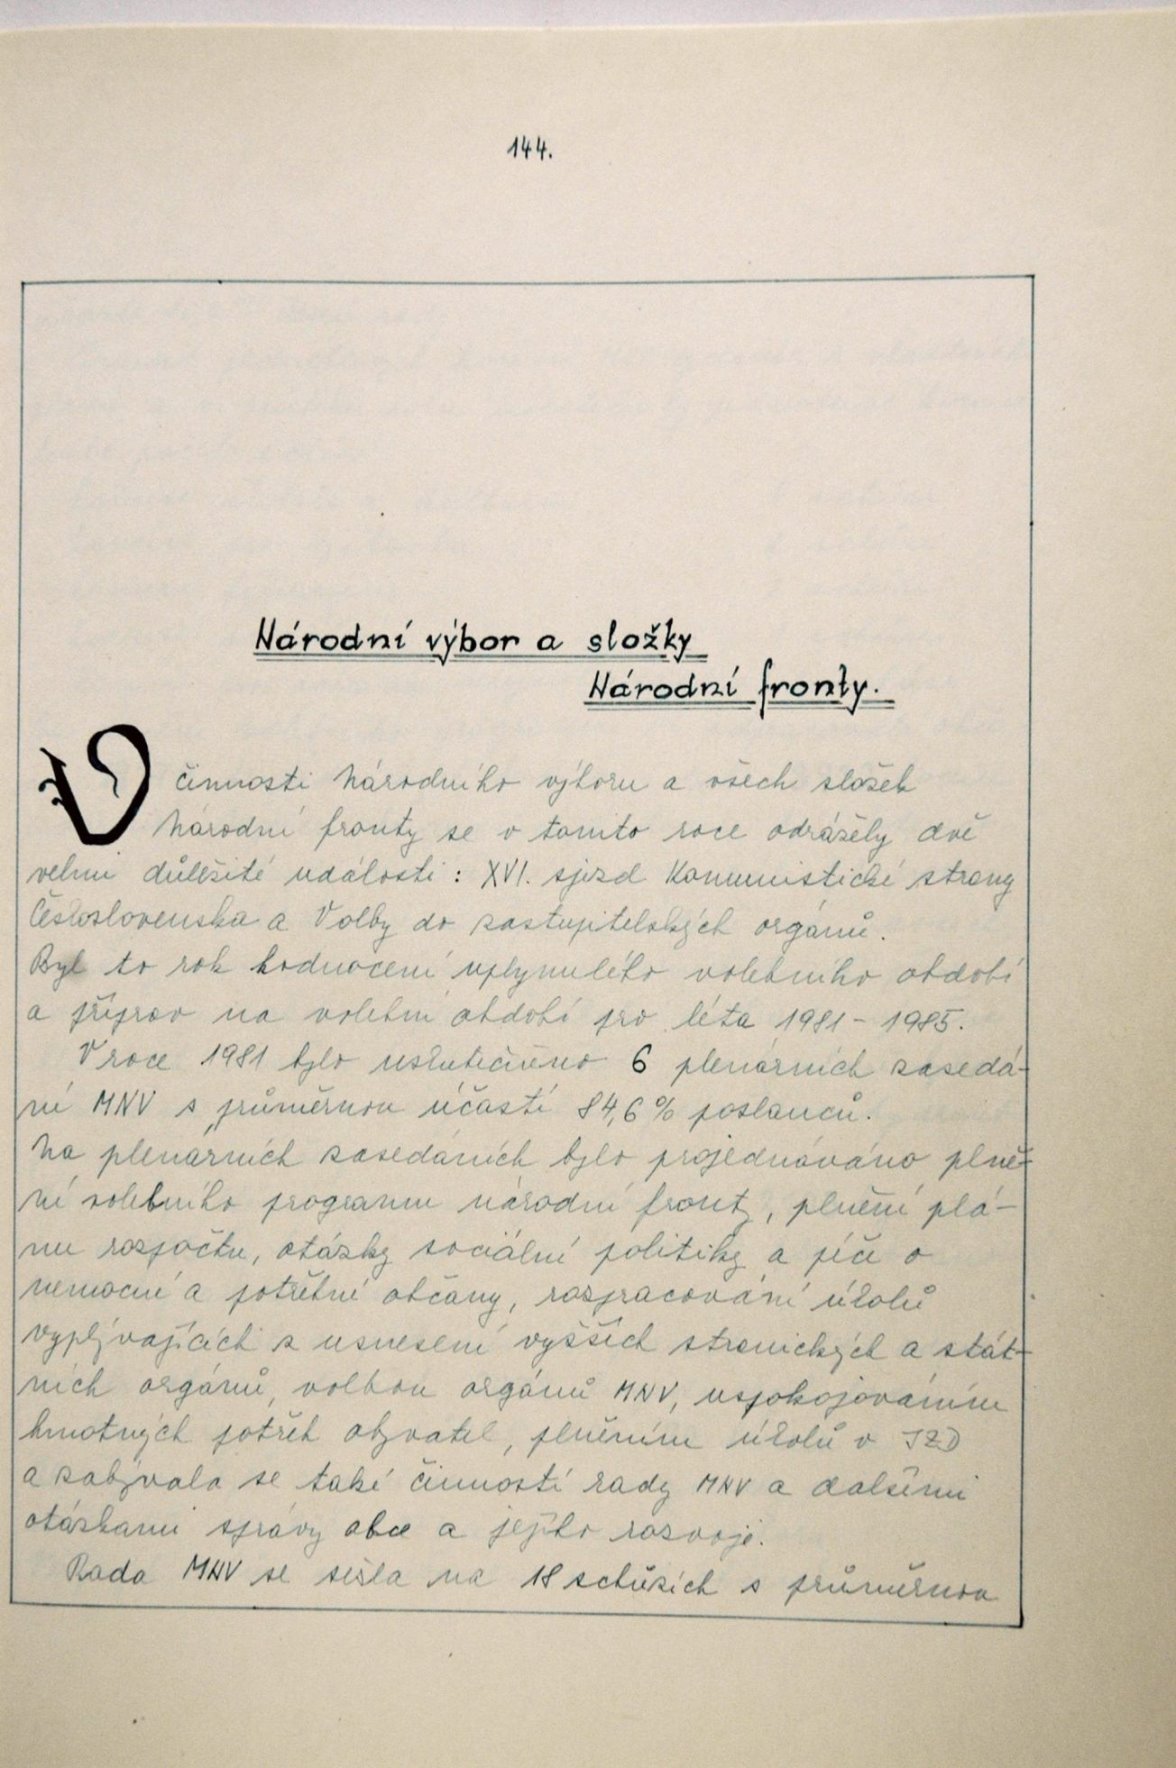 144.
Národní výbor a složky
Národní fronty.
V činnosti Národního výboru a všech složek
Národní fronty se v tomto roce odrážely dvě
velmi důležité události: XVI. sjezd Komunistické strany
Československa a Volby do zastupitelských orgánů.
Byl to rok hodnocení uplynulého volebního období
a příprav na volební období pro léta 1981 - 1985.
V roce 1981 bylo uskutečněno 6 plenárních zasedá-
ní MNV s průměrnou účastí 84,6% poslanců.
Na plenárních zasedáních bylo projednáváno plně-
ní volebního programu národní fronty, plnění plá-
nu rozpočtu, otázky sociální politiky a péči o
nemocní a potřebné občany, rozpracování úkolů
vyplývajících z usnesení vyšších stranických a stát-
ních orgánů, volbou orgánů MNV, uspokojováním
hmotných potřeb obyvatel, plněním úkolů v JZD
a zabývala se také činností rady MNV a dalšími
otázkami správy obce a jejího rozvoje.
Rada MNV se sešla na 18 schůzích s průměrnou